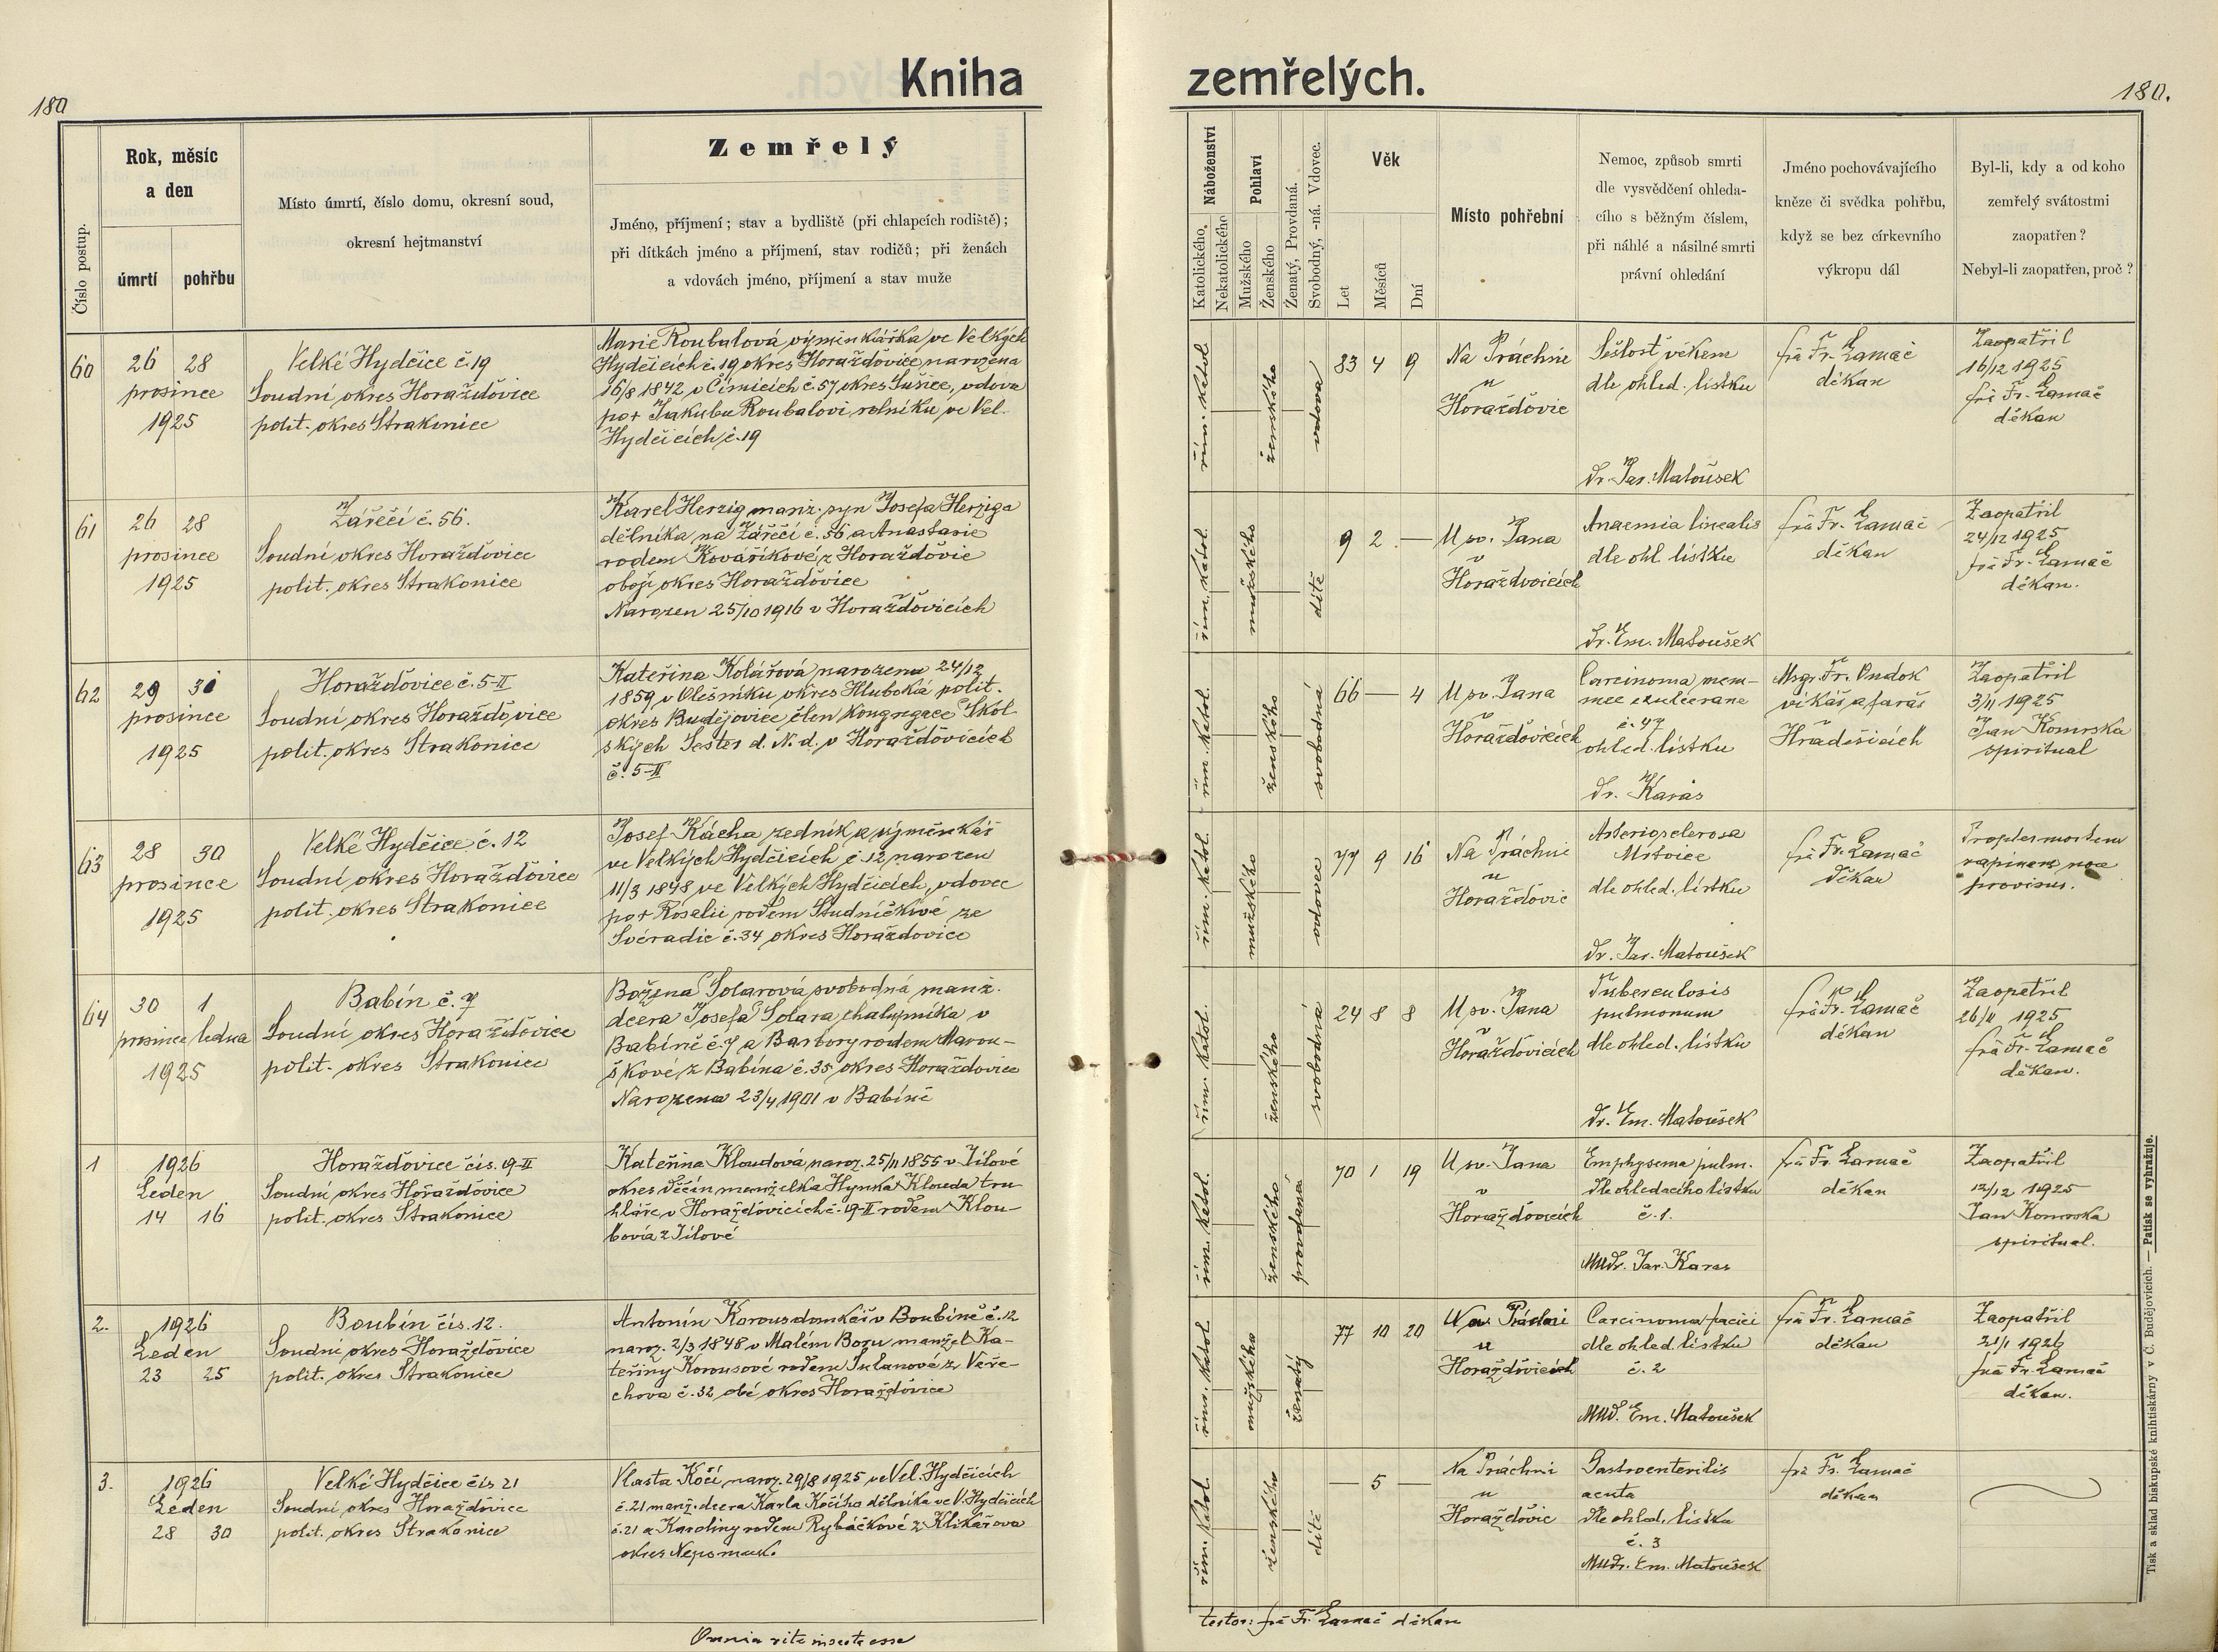 180
Kniha
zemřelých.
180.
Číslo postup.
Rok, měsíc
a den
úmrtí
pohřbu
Místo úmrtí, číslo domu, okresní soud,
okresní hejtmanství
Zemřelý
Jméno, příjmení; stav a bydliště (při chlapcích rodiště);
při dítkách jméno a příjmení, stav rodičů; při ženách
a vdovách jméno, příjmení a stav muže
Náboženství
Katolického.
Nekatolického
Pohlaví
Mužského
Ženského
Ženatý, Provdaná.
Svobodný, -ná. Vdovec.
Věk
Let
Měsíců
Dní
Místo pohřební
Nemoc, způsob smrti
dle vysvědčení ohleda-
cího s běžným číslem,
při náhlé a násilné smrti
právní ohledání
Jméno pochovávajícího
kněze či svědka pohřbu,
když se bez církevního
výkropu dál
Byl-li, kdy a od koho
zemřelý svátostmi
zaopatřen?
Nebyl-li zaopatřen, proč?
60
26 28
prosince
1925
Velké Hydčice č. 19
Soudní okres Horažďovice
polit. okres Strakonice
Marie Roubalová výměnkářka ve Velkých
Hydčicích č. 19 okres Horažďovice, narozena
16/8 1842 v Čímicích č. 57 okres Sušice, vdova
po + Jakubu Roubalovi rolníku ve Vel.
Hydčicích č. 19
řím. katol.
ženského
vdova
83 4 9
Na Práchni
u
Horažďovic
Sešlosť věkem
dle ohled. lístku
Dr. Jar. Matoušek
frà Fr. Lamač
děkan
Zaopatřil
16/12 1925
frà Fr. Lamač
děkan
61
26 28
prosince
1925
Zářečí č. 56.
Soudní okres Horažďovice
polit. okres Strakonice
Karel Herzig manž. syn Josefa Herziga
dělníka na Zářečí č. 56 a Anastasie
rodem Kováříkové z Horažďovic
obojí okres Horažďovice
Narozen 25/10 1916 v Horažďovicích
řím. katol.
mužského
dítě
9 2 —
U sv. Jana
v
Horažďvoicích
Anaemia linealis
dle ohl. lístku
Dr. Em. Matoušek
frà Fr. Lamač
děkan
Zaopatřil
24/12 1925
frà Fr. Lamač
děkan.
62
29 31
prosince
1925
Horažďovice č. 5-II
Soudní okres Horažďovice
polit. okres Strakonice
Kateřina Kolářová narozena 24/12
1859 v Olešníku okres Hluboká polit.
okres Budějovice člen Kongregace Škol
ských Sester d. N. d. v Horažďovicích
č. 5-II
řím. katol.
ženského
svobodná
66 — 4
U sv. Jana
v
Horažďovicích
Carcinoma mam-
mee exulcerane
č. 47
ohled. lístku
Dr. Karas
Msgr. Fr. Pudok
vikář a farář
Hradešicích
Zaopatřil
3/11 1925
Jan Komrska
spiritual
63
28 30
prosince
1925
Velké Hydčice č. 12
Soudní okres Horažďovice
polit. okres Strakonice
Josef Kácha zedník a výměnkář
ve Velkých Hydčicích č. 12 narozen
11/3 1848 ve Velkých Hydčicích, vdovec
po + Rosalii rodem Studničkivé ze
Svéradic č. 34 okres Horažďovice
řím. katol.
mužského
vdovec
77 9 16
Na Práchni
u
Horažďovic
Arterioselerosa
Mrtvice
dle ohled. lístku
Dr. Jar. Matoušek
frà Fr. Lamač
děkan
Propter mortem
rapinem non
provisus.
64
30 1
prosince ledna
1925
Babín č. 7
Soudní okres Horažďovice
polit. okres Strakonice
Božena Solarová svobodná manž.
dcera Josefa Solara chalupníka v
Babíně č. 7 a Barbory rodem Marou-
škové z Babína č. 35 okres Horažďovice
Narozena 23/4 1901 v Babíně
řím. katol.
ženského
svobodná
24 8 8
U sv. Jana
v
Horažďovicích
Tuberculosis
pulmonum
dle ohled. lístku
Dr. Em. Matoušek
frà Fr. Lamač
děkan
Zaopatřil
26/11 1925
frà Fr. Lamač
děkan.
1
1926
Leden
14 16
Horažďovice čís. 19-II
Soudní okres Horažďovice
polit. okres Strakonice
Kateřina Kloudová naroz. 25/11 1855 v Jílové
okres Děčín manželka Hynka Klouda tru
hláře v Horažďovicích č. 19-II rodem Klou-
bovia z Jílové
řím. katol.
ženského
provdaná
70 1 19
U sv. Jana
v
Horažďovicích
Emphysema pulm.
dle ohledacího lístku
č. 1.
MUDr. Jar. Karas
frà Fr. Lamač
děkan
Zaopatřil
12/12 1925
Jan Komrska
spiritual.
2.
1926
Leden
23 25
Boubín čís. 12.
Soudní okres Horažďovice
polit. okres Strakonice
Antonín Korous domkář v Boubíně č. 12
naroz. 2/3 1848 v Malém Boru manžel Ka-
teřiny Korousové rodem Sulanové z Veře-
chova č. 32 obé okres Horažďovice
řím. katol.
mužského
ženatý
77 10 20
Na Práchni
u
Horažďovicích
Carcinoma faciei
dle ohled. lístku
č. 2
MUD. Em. Matoušek
frà Fr. Lamač
děkan
Zaopatřil
21/1 1926
frà Fr. Lamač
děkan.
3.
1926
Leden
28 30
Velké Hydčice čís 21
Soudní okres Horažďovice
polit. okres Strakonice
Vlasta Kočí naroz. 29/8 1925 ve Vel. Hydčicích
č. 21 manž. dcera Karla Kočího dělníka ve V. Hydčicích
č. 21 a Karoliny rodem Rybáčkové z Klikařova
okres Nepomuk.
řím. katol.
ženského
dítě
— 5 —
Na Práchni
u
Horažďovic
Gastroenteritis
acuta
dle ohled. lístku
č. 3
MUDr. Em. Matoušek
frà Fr. Lamač
děkan
Omnia rite inserta esse
testor: frà Fr. Lamač děkan
Tisk a sklad biskupské knihtiskárny v Č. Budějovicích. — Patisk se vyhražuje.